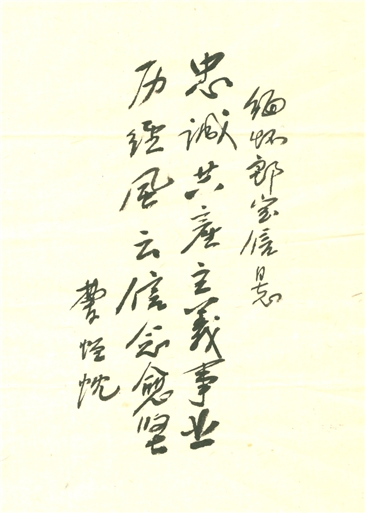 缅怀郎宝信同志
忠诚共产主义事业
历经风云信念愈坚